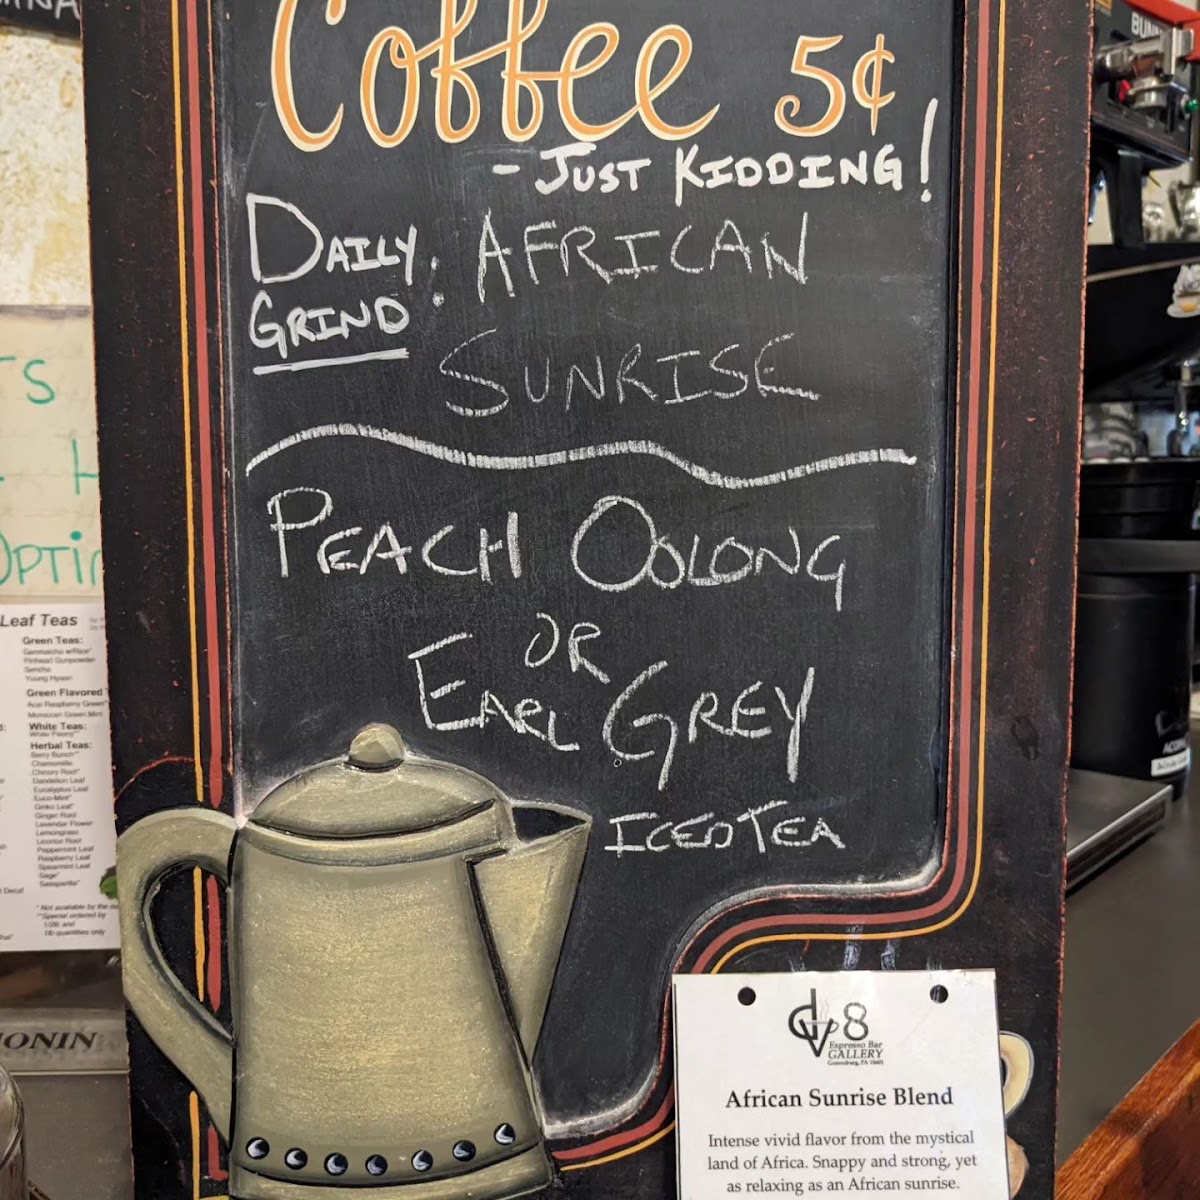 Coffee 5¢
- JUST KIDDING!
DAILY GRIND: AFRICAN
SUNRISE
PEACH OOLONG
OR
EARL GREY
ICED TEA
DV8
Espresso Bar
GALLERY
Greensburg, PA 15601
African Sunrise Blend
Intense vivid flavor from the mystical
land of Africa. Snappy and strong, yet
as relaxing as an African sunrise.
TS
H
OPTI
Leaf Teas
Green Teas:
Genmaicha w/Rice*
Pinhead Gunpowder
Sencha
Young Hyson
Green Flavored
Acai Raspberry Green*
Moroccan Green Mint
White Teas:
White Peony**
Herbal Teas:
Berry Bunch**
Chamomile
Chicory Root*
Dandelion Leaf
Eucalyptus Leaf
Euco-Mint*
Ginko Leaf*
Ginger Root
Lavendar Flower
Lemongrass
Licorice Root
Peppermint Leaf
Raspberry Leaf
Spearmint Leaf
Sage*
Sassparilla*
Decaf
* Not available by the
**Special ordered by
1/2lb and
1lb quantities only
ONIN
BUNN